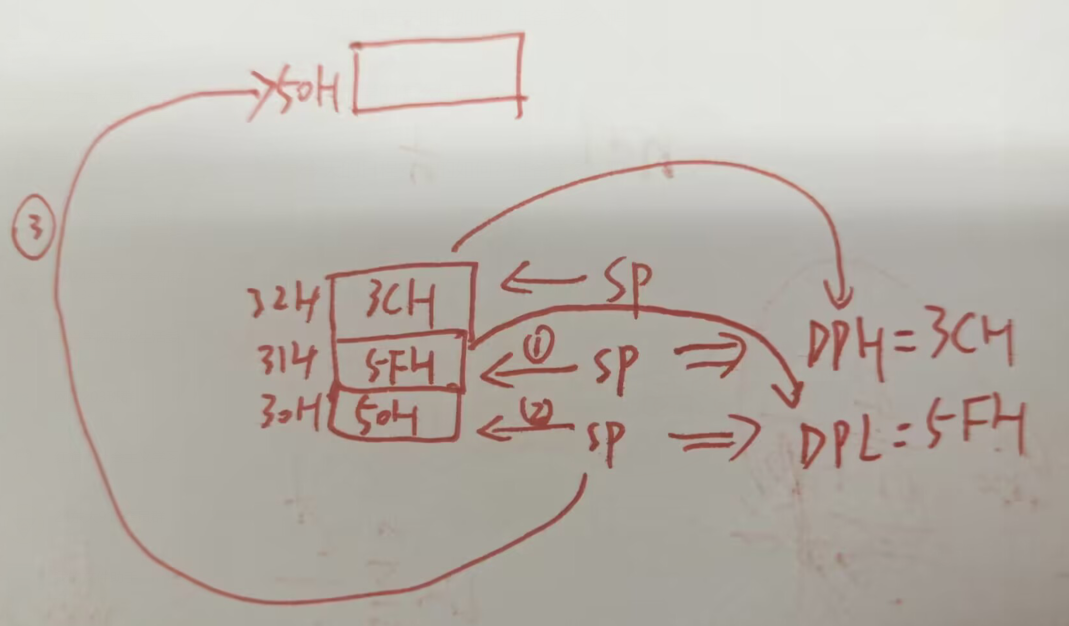 50H
③
32H 3CH ← SP
31H 5FH ← ① SP ⇒ DPH = 3CH
30H 50H ← (2) SP ⇒ DPL = 5FH